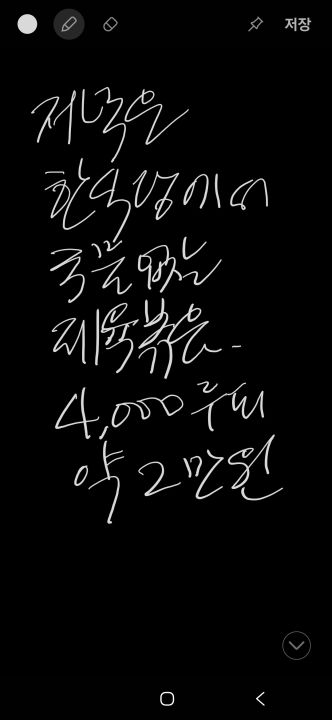 저장
저녁은
한식당에서
국물없는
제육볶음-
4,000루피
약 2만원